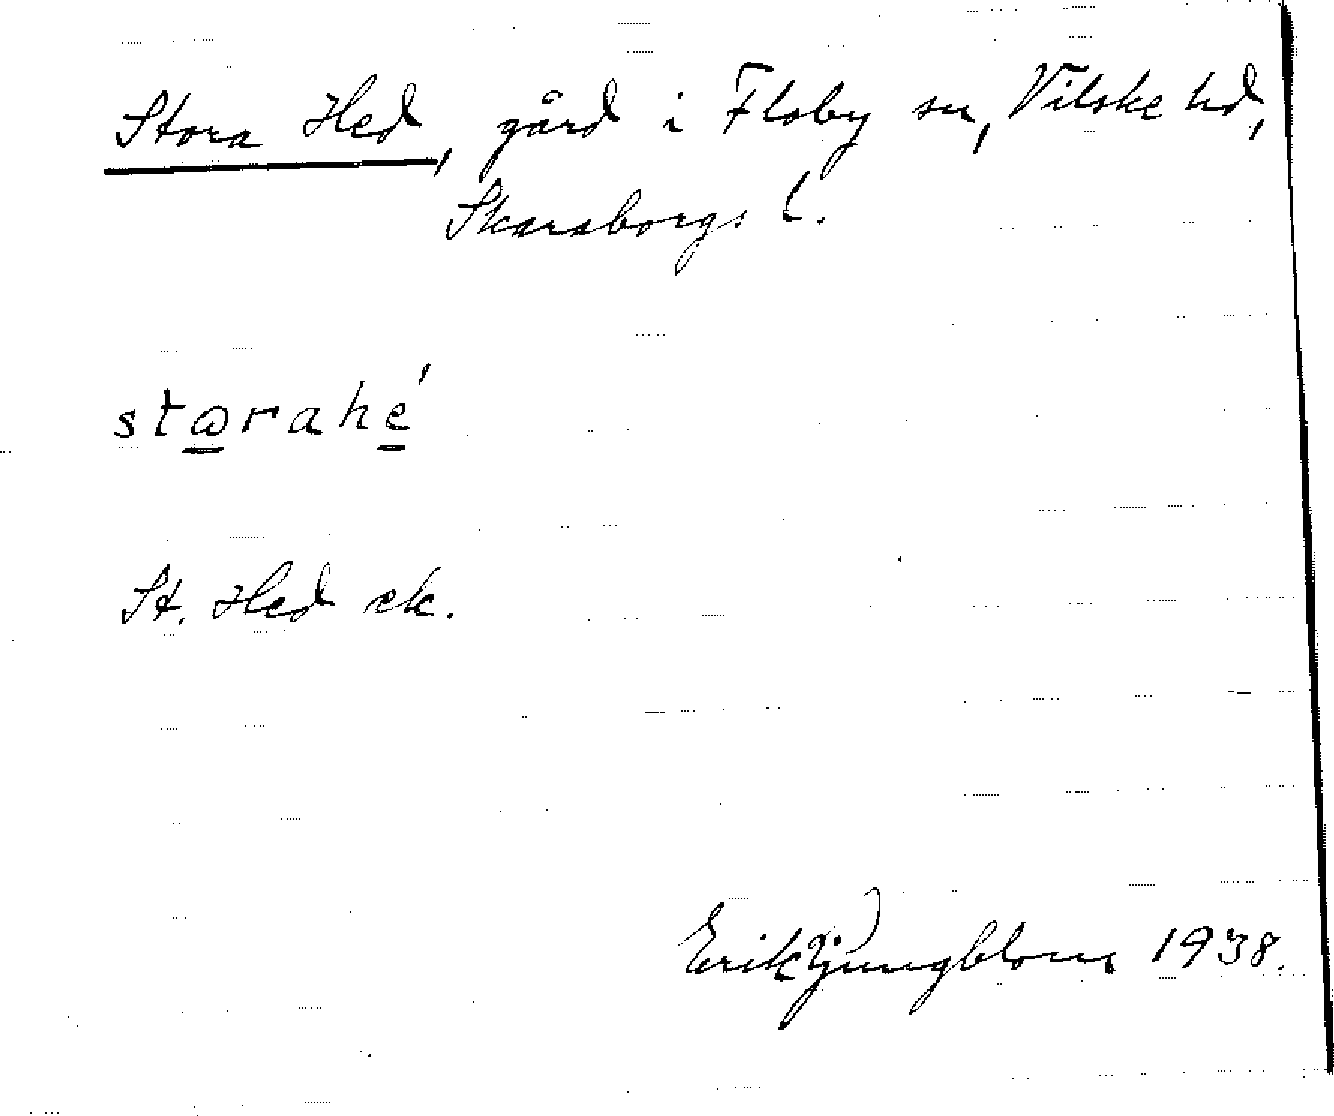 Stora Hed, gård i Floby sn, Vilske hd,
Skaraborgs l.
storahe´
St. Hed ek.
Erik Ljungblom 1938.